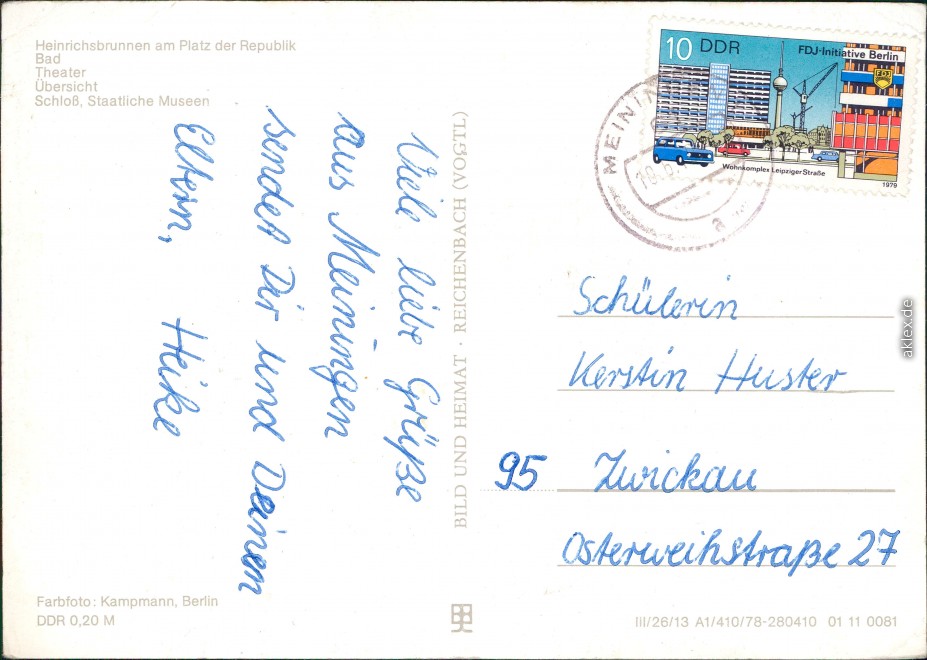 Heinrichsbrunnen am Platz der Republik
Bad
Theater
Übersicht
Schloß, Staatliche Museen
Viele liebe Grüße
aus Meiningen
sendet Dir und Deinen
Eltern, Heike
Farbfoto: Kampmann, Berlin
DDR 0,20 M
BILD UND HEIMAT · REICHENBACH (VOGTL)
10 DDR
FDJ-Initiative Berlin
FDJ
Wohnkomplex Leipziger Straße
1979
MEININ
a
Schülerin
Kerstin Huster
95 Zwickau
Osterweihstraße 27
III/26/13 A1/410/78-280410 01 11 0081
aklex.de